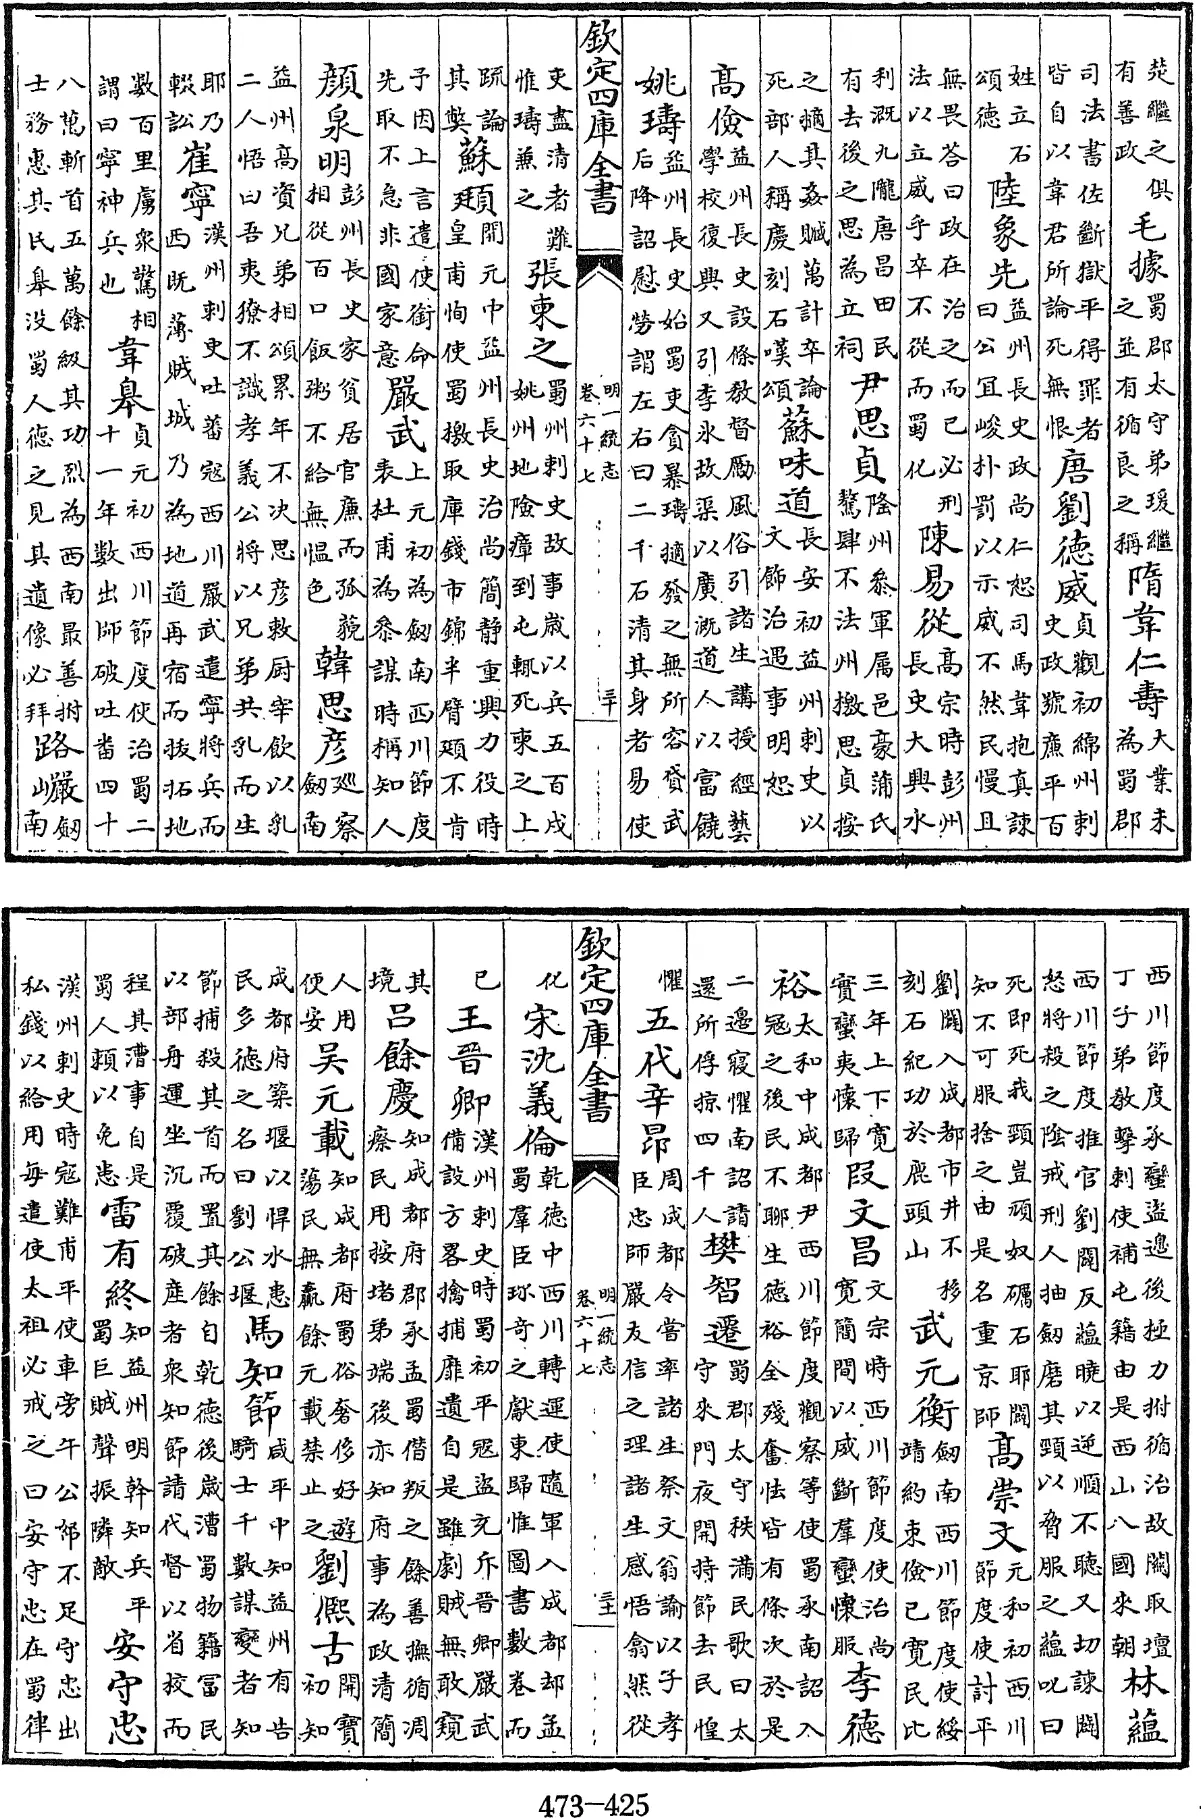 熒繼之俱有善政毛據蜀郡太守弟瑗繼之並有循良之稱隋韋仁壽大業末為蜀郡
司法書佐斷獄平得罪者皆自以韋君所論死無恨唐劉德威貞觀初綿州刺史政號㢘平百
姓立石頌德陸象先益州長史政尚仁恕司馬韋抱真諫曰公宜峻扑罰以示威不然民慢且
無畏答曰政在治之而已必刑法以立威乎卒不從而蜀化陳易從高宗時彭州長史大興水
利溉九隴唐昌田民有去後之思為立祠尹思貞隆州叅軍属邑豪蒲氏驁肆不法州檄思貞按
之擿其姦贓萬計卒論死部人稱慶刻石嘆頌蘇味道長安初益州刺史以文飾治遇事明恕
高儉益州長史設條教督勵風俗引諸生講授經藝學校復興又引李氷故渠以廣溉道人以富饒
姚璹益州長史始蜀吏貪暴璹擿發之無所容貸武后降詔慰勞謂左右曰二千石清其身者易使
欽定四庫全書 明一統志卷六十七 三十
吏盡清者難惟璹兼之張柬之蜀州刺史故事歲以兵五百戍姚州地險瘴到屯輒死柬之上
疏論其獘蘇頲開元中益州長史治尚簡静重興力役時皇甫恂使蜀檄取庫錢市錦半臂頲不肯
予因上言遣使銜命先取不急非國家意嚴武上元初為劒南西川節度表杜甫為叅謀時稱知人
顔泉明彭州長史家貧居官㢘而孤藐相從百口飯粥不給無愠色韓思彦巡察劒南
益州高資兄弟相頌累年不决思彦敕厨宰飲以乳二人悟曰吾夷獠不識孝義公將以兄弟共乳而生
耶乃輟訟崔寧漢州刺史吐蕃冦西川嚴武遣寧將兵而西既薄賊城乃為地道再宿而拔拓地
數百里虜衆驚相謂曰寧神兵也韋臯貞元初西川節度使治蜀二十一年數出師破吐畨四十
八萬斬首五萬餘級其功烈為西南最善拊士務惠其民臯没蜀人德之見其遺像必拜路嚴劒山南
西川節度承蠻盜邉後拯力拊循治故關取壇丁子弟教擊刺使補屯籍由是西山八國來朝林藴
西川節度推官劉闢反藴曉以逆順不聽又切諫闢怒將殺之陰戒刑人抽劒磨其頸以脅服之藴叱曰
死即死我頸豈頑奴礪石耶闢知不可服捨之由是名重京師高崇文元和初西川節度使討平
劉闢入成都市井不移刻石紀功於鹿頭山武元衡劒南西川節度使綏靖約束儉已寛民比
三年上下寛實蠻夷懷歸叚文昌文宗時西川節度使治尚寛簡間以威斷羣蠻懷服李德
裕太和中成都尹西川節度觀察等使蜀承南詔入冦之後民不聊生德裕全殘奮怯皆有條次於是
二邉寝懼南詔請還所俘掠四千人樊智遷蜀郡太守秩滿民歌曰太守來門夜開持節去民惶
懼五代辛昂周成都令嘗率諸生祭文翁諭以子孝臣忠師嚴友信之理諸生感悟翕然從
欽定四庫全書 明一統志卷六十七 三十一
化宋沈義倫乾德中西川轉運使隨軍入成都却孟蜀羣臣珎奇之獻東歸惟圖書數卷而
已王晉卿漢州刺史時蜀初平冦盜充斥晉卿嚴武備設方畧擒捕靡遺自是雖劇賊無敢窺
其境吕餘慶知成都府郡承孟蜀僭叛之餘善撫循凋瘵民用按堵弟端後亦知府事為政清簡
人用便安吴元載知成都府蜀俗奢侈好遊蕩民無贏餘元載禁止之劉熈古開寶初知
成都府築堰以悍水患民多德之名曰劉公堰馬知節咸平中知益州有告騎士千數謀變者知
節捕殺其首而置其餘自乾德後歳漕蜀物籍富民以部舟運坐沉覆破産者衆知節請代督以省校而
程其漕事自是蜀人頼以免患雷有終知益州明幹知兵平蜀巨賊聲振隣敵安守忠
漢州刺史時冦難甫平使車旁午公帑不足守忠出私錢以給用每遣使太祖必戒之曰安守忠在蜀律
473-425